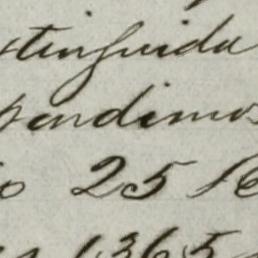 stinguida
pendimos
io 25 Se
1365